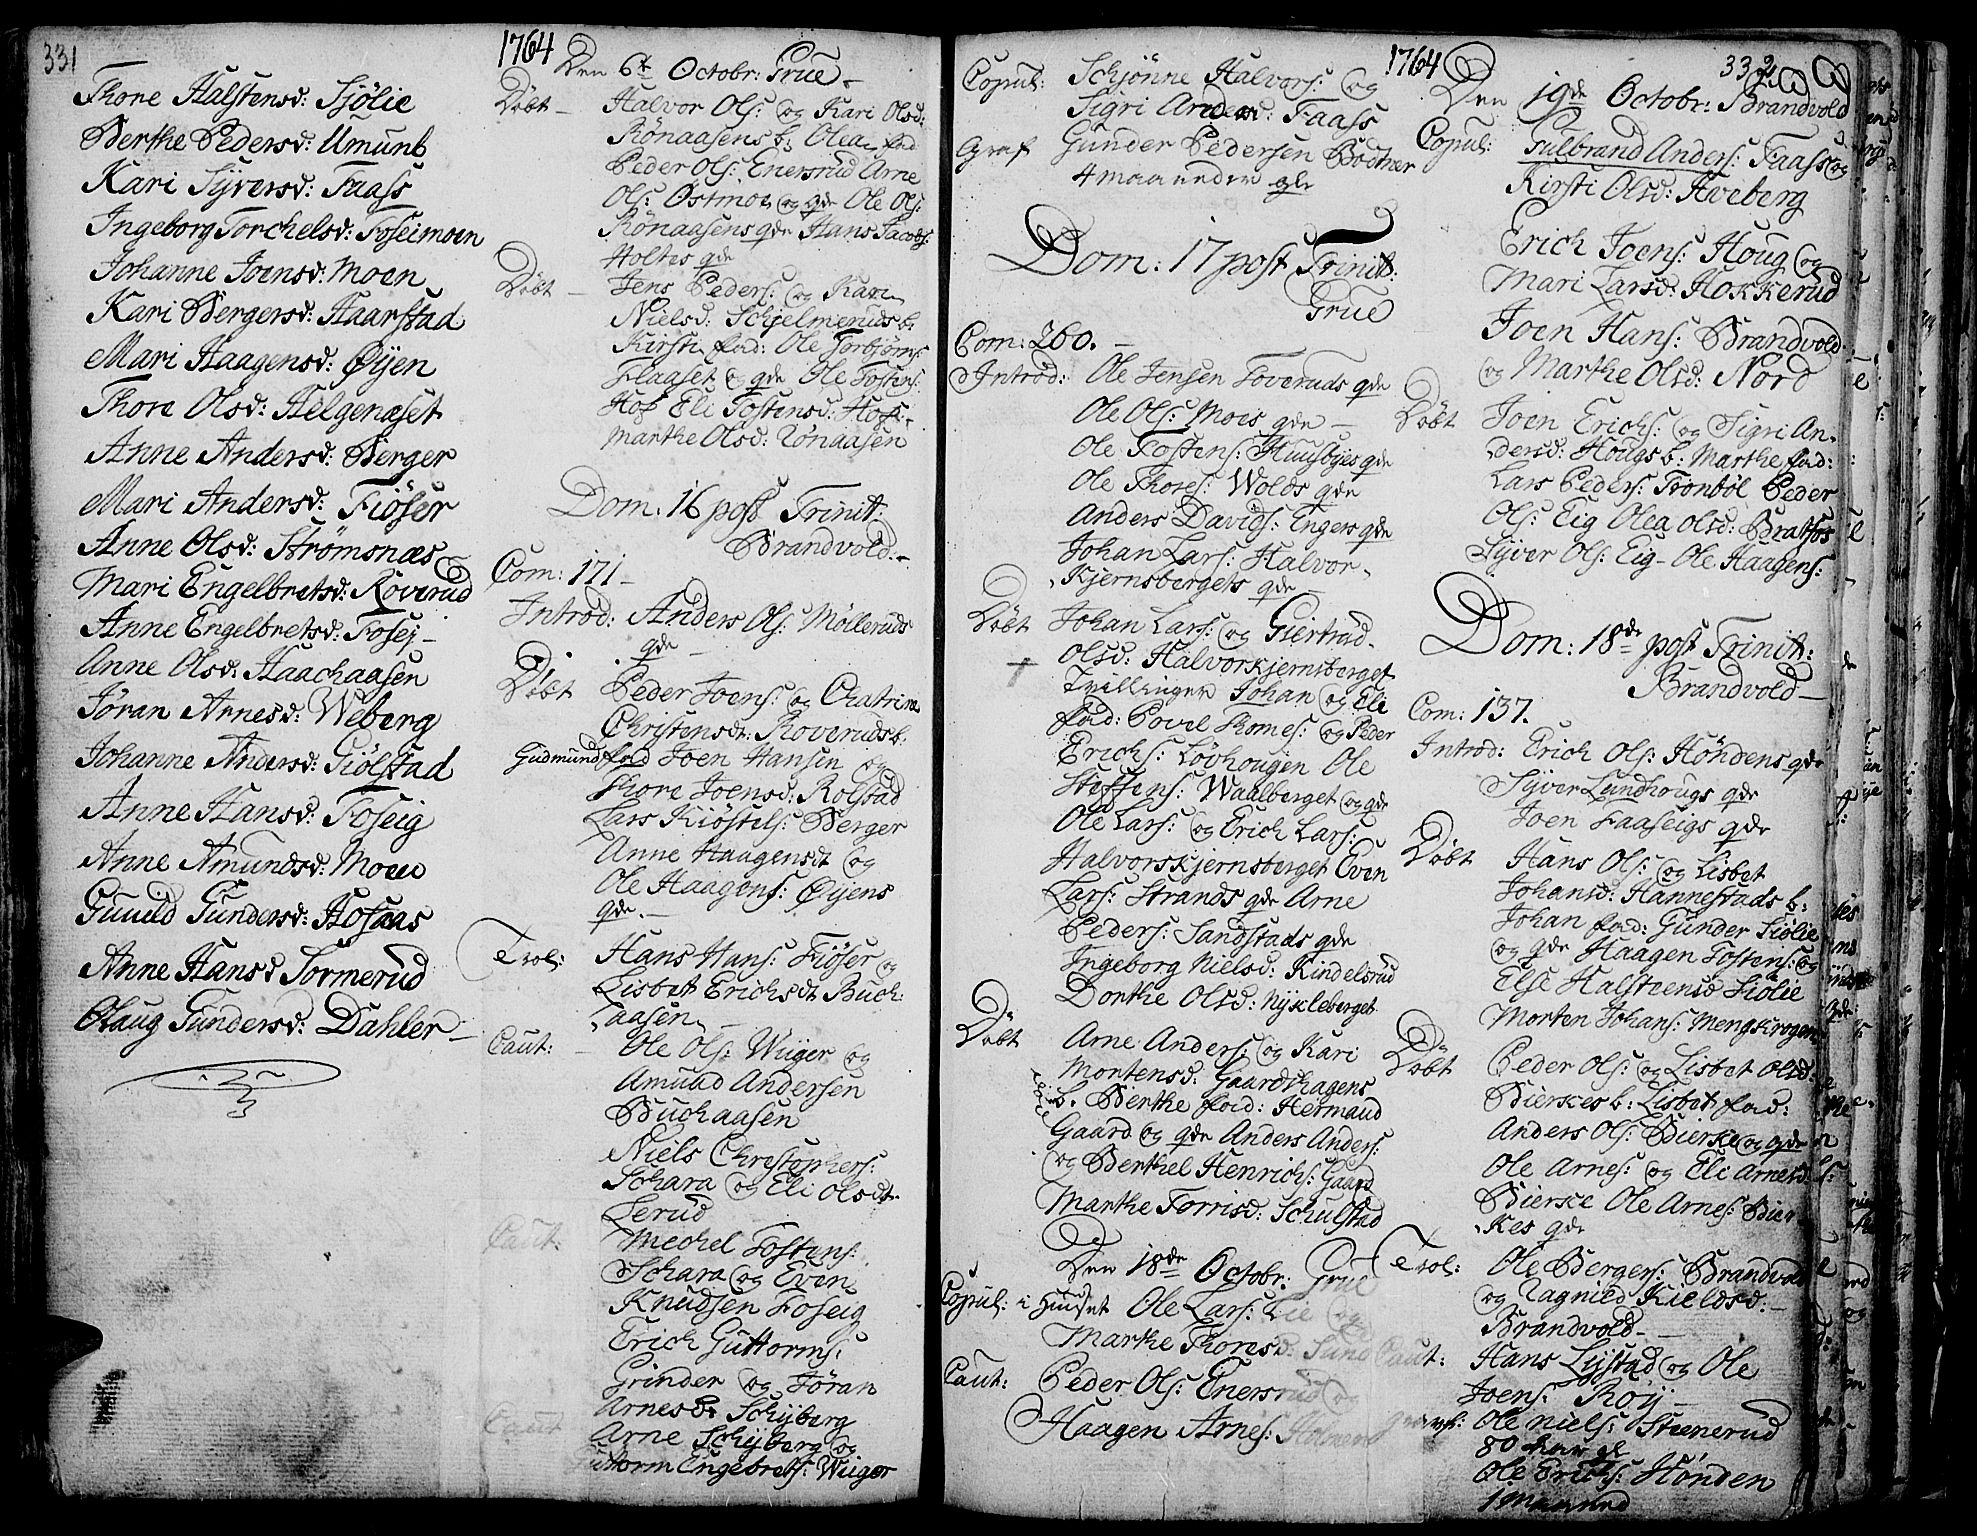 331
Thore Halstensd: Sjölie
Berthe Pedersd: Umunt
Kari Syversd: Faass
Ingeborg Torchelsd: Foseimoen
Johanne Joensd: Moen
Kari Bergersd: Haarstad
Mari Haagensd: Øyen
Thore Olsd: Helgenæset
Anne Andersd: Berger
Mari Andersd: Fiöser
Anne Olsd: Strömsnæs
Mari Engelbretsd: Roverud
Anne Engelbretsd: Fosej
Anne Olsd: Haachaasen
Jöran Arnesd: Weberg
Johanne Andersd: Giölstad
Anne Hansd: Foseig
Anne Amundsd: Moen
Gunild Gundersd: Hofaas
Anne Hansd Sormerud
Olaug Gundersd: Dahler
1764
Den 6te Octobr: Grue
Döbt Halvor Ols: og Kari Olsd:
Rönaasens b: Olea fad
Peder Ols: Enersrud Arne
Ols: Östmoe og qde Ole Ols:
Rönaasens qde Hans Jacobs:
Holtes qde
Döbt Jens Peders: og Kari
Nielsd: Schjelmeruds b:
Kirsti fad: Ole Torbjörns:
Flaaset og qde Ole Tostens:
Hof Eli Tostensd: Hof
Marthe Olsd: Rönaasen
Dom: 16 post Trinit:
Brandvold
Com: 171
Introd: Anders Ols: Mölleruds
qde
Döbt Peder Joens: og Chatrina
Christensdt: Roveruds b.
Gudmund fad Joen Hansen og
Thore Joensd: Rolstad
Lars Kiöstels: Berger
Anne Haagensdt og
Ole Haagens: Øyens
qde
Trol: Hans Hans: Fiöser og
Lisbet Erichsdt Buch
aasen
Caut: Ole Ols: Wiiger og
Amund Andersen
Buchaasen
Niels Christophers:
Schara og Eli Olsdt
Lerud
Caut: Mechel Tostens:
Schara og Even
Knudsen Foseig
Erich Guttorms:
Grinder og Jöran
Arnesd: Schyberg
Caut Arne Schyberg og
Guttorm Engebrets: Wiiger
Copul: Schjönne Halvors: og
Sigri Andersd: Faass
Graf Gunder Pedersen Bodtner
4 maaneder gle
Dom: 17 post Trinit:
Grue
Com: 260.
Introd: Ole Jensen Foveruds qde
Ole Ols: Moes qde
Ole Tostens: Huusbyes qde
Ole Thores: Wolds qde
Anders Davids: Engers qde
Johan Lars: Halvor
Kjernsbergets qde
Döbt Johan Lars: og Giertrud
Olsd: Halvorskjernsberget
Tvillinger Johan og Eli
fad: Povel Thomes: og Peder
Erichs: Lövhougen Ole
Steffens: Waalberget og qde
Ole Lars: og Erich Lars:
Halvorskjernsberget Even
Lars: Strands qde Arne
Peders: Sandstads qde
Ingeborg Nielsd: Kindelsrud
Dorthe Olsd: Nyckleberget
Döbt Arne Anders: og Kari
Mortensd: Gaardshagens
b. Berthe fad: Hermand
Gaard og qde Anders Anders:
og Berthel Henrichs: Gaard
Marthe Torrisd: Schulstad
Den 18de Octobr: Grue
Copul: i Huuset Ole Lars: Lie og
Marthe Thoresd: Sund
Caut: Peder Ols: Enersrud og
Haagen Arnes: Holmen
1764
332
Den 19de Octobr: Brandvold
Copul: Gulbrand Anders: Faass og
Kirsti Olsd: Aveberg
Erich Joens: Houg og
Mari Larsd: Hokkerud
Joen Hans: Brandvold
og Marthe Olsd: Nord
Döbt Joen Erichs: og Sigri An-
dersd: Hougs b: Marthe fad:
Lars Peders: Trontöl Peder
Ols: Eig Olea Olsd: Bratfos
Syver Ols: Eig Ole Haagens:
Dom: 18de post Trinit:
Brandvold
Com: 137.
Introd: Erich Ols: Höndens qde
Syver Lundhougs qde
Joen Faaseigs qde
Döbt Hans Ols: og Lisbet
Johansd: Hannestads b:
Johan fad: Gunder Siölie
og qde Haagen Tostens: og
Else Halsteensd Siölie
Morten Johans: Mengkrogen
Döbt Peder Ols: og Lisbet Olsd:
Bierkes b: Lisbet fad:
Anders Ols: Bierke og qde
Ole Arnes: og Eli Arnesd:
Bierke Ole Arnes: Bier-
kes qde
Trol: Ole Bergers: Brandvold
og Ragnild Kieldsd:
Brandvold
Caut: Hans Lystad og Ole
Joens: Roy
Ole Niels: Steenerud
80 Aar gl
Ole Erichs: Hönden
1 Maaned